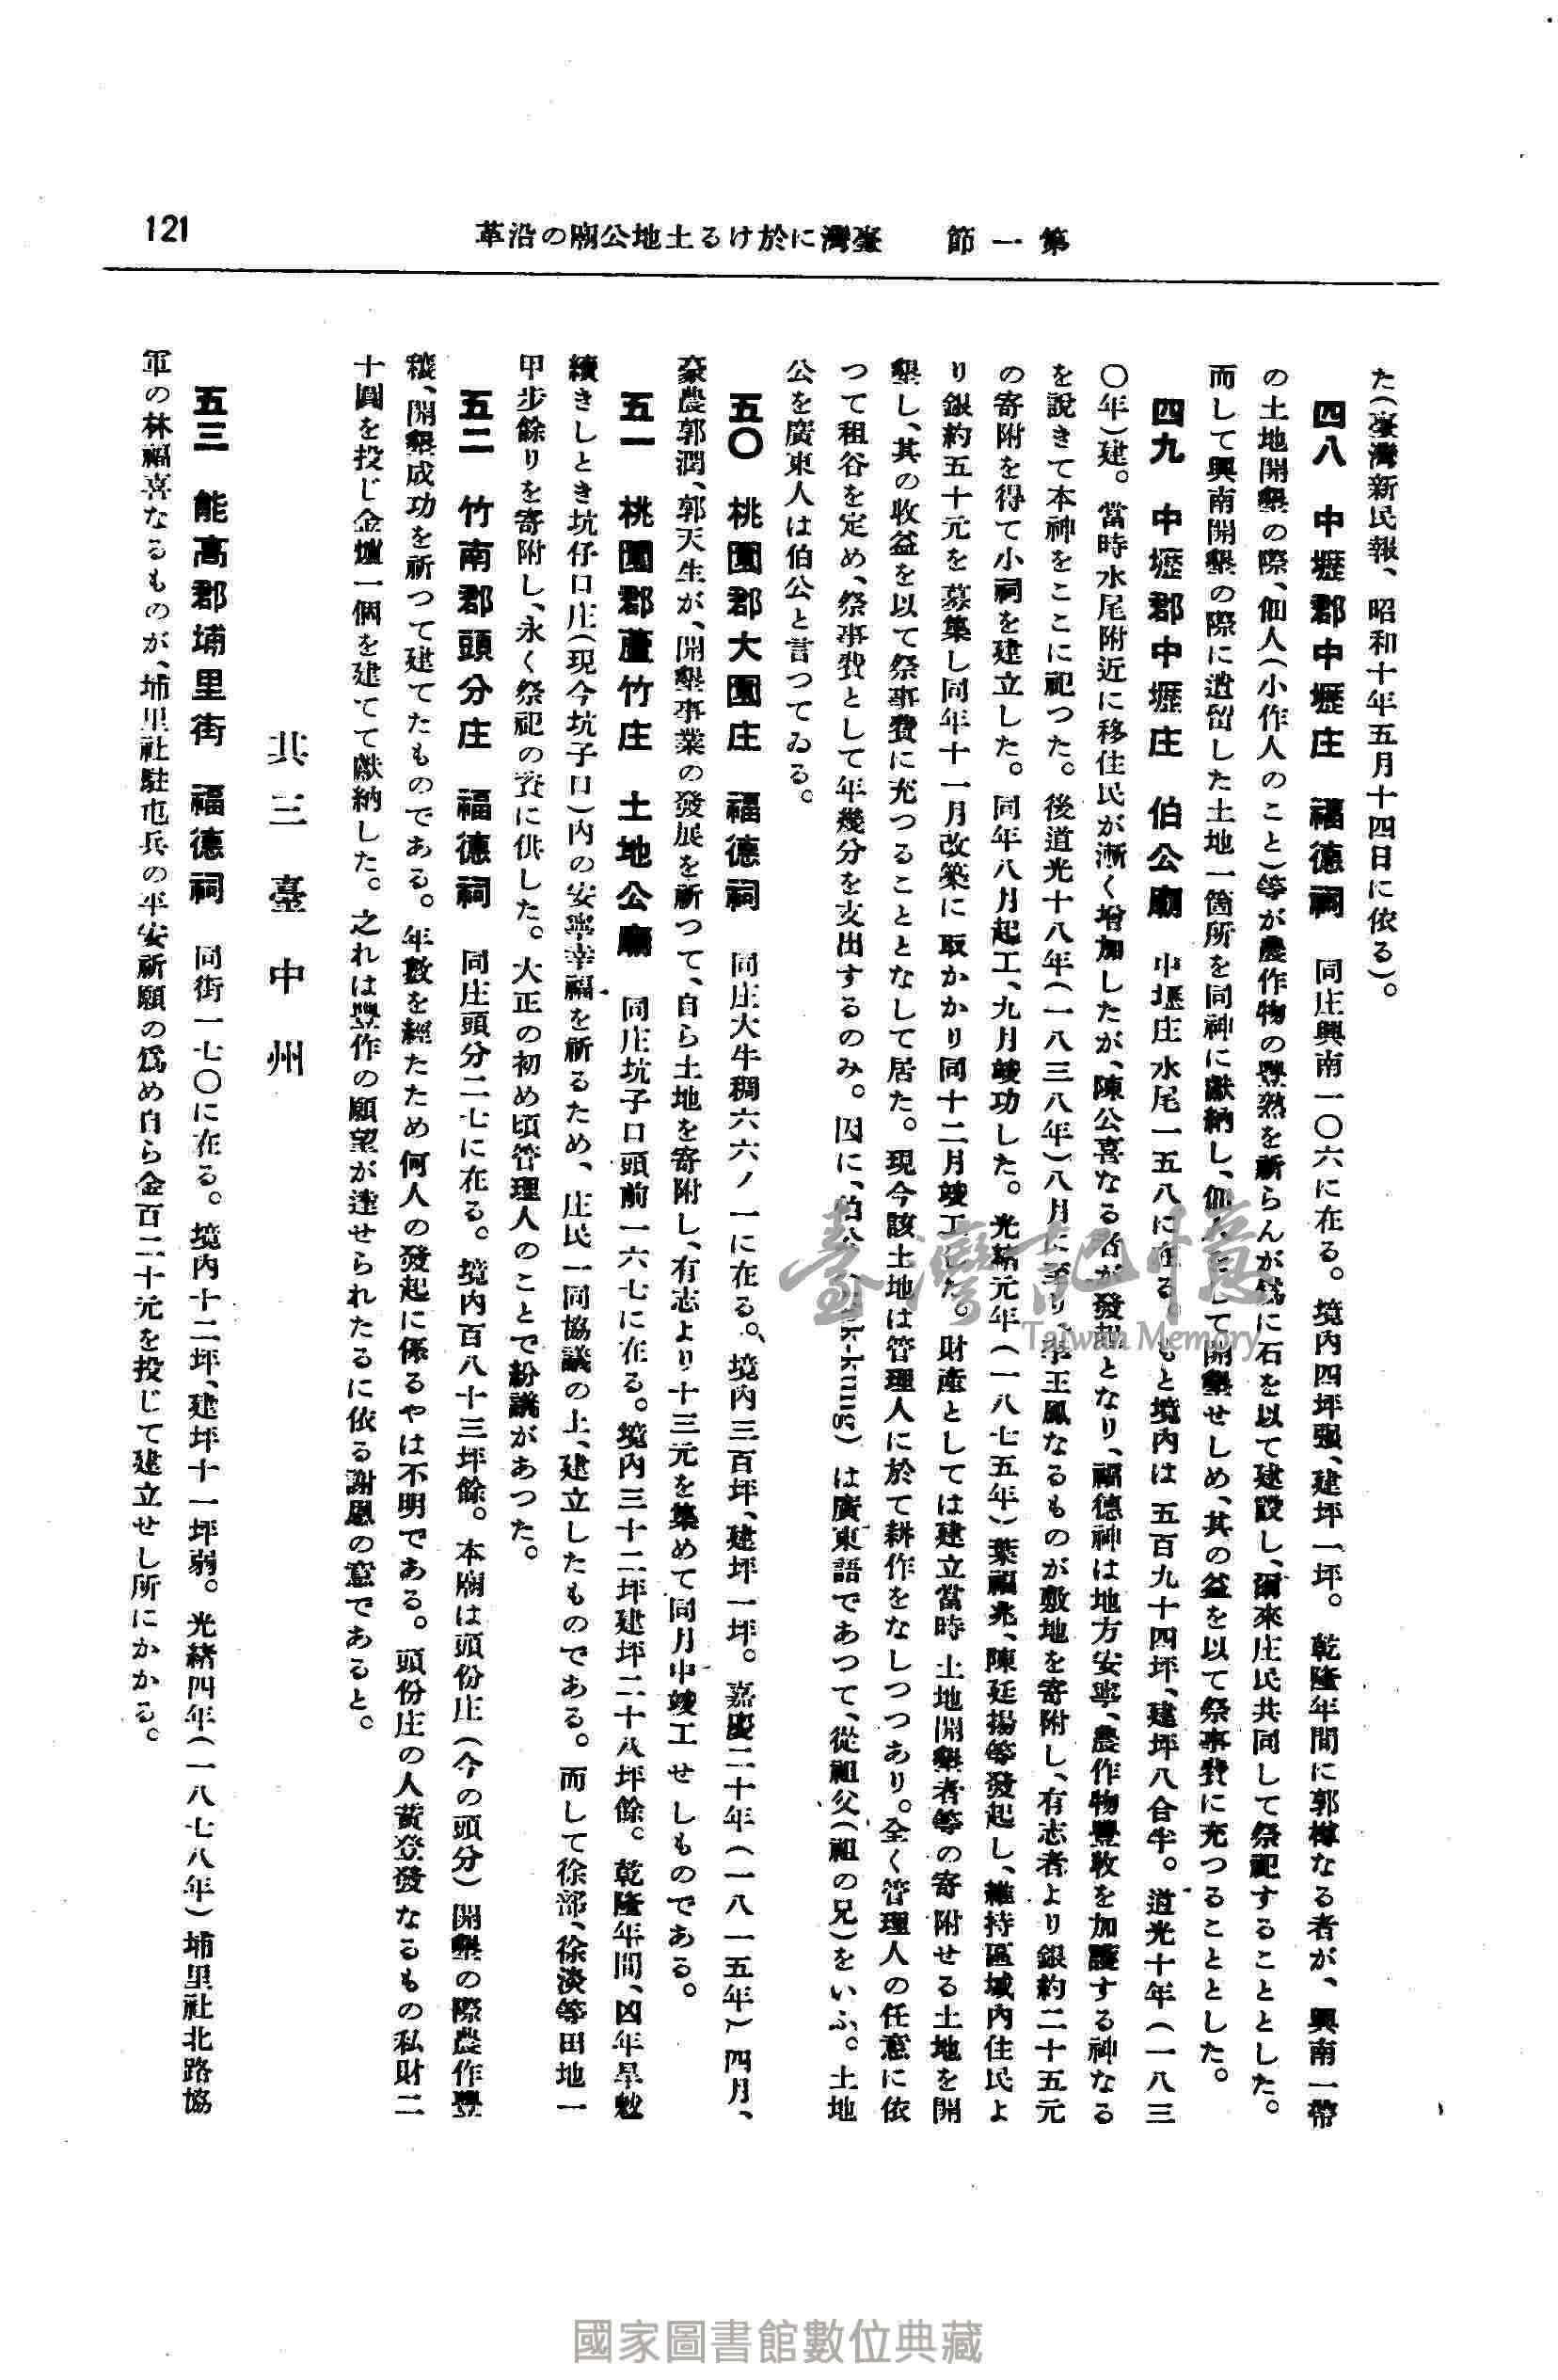 121
第一節　臺灣に於ける土地公廟の沿革
た(臺灣新民報、昭和十年五月十四日に依る)。
四八　中壢郡中壢庄　福德祠　同庄興南一〇六に在る。境内四坪强、建坪一坪。乾隆年間に郭樽なる者が、興南一帶
の土地開墾の際、佃人(小作人のこと)等が農作物の豐熟を祈らんが爲に石を以て建設し、爾來庄民共同して祭祀することとした。
而して興南開墾の際に遺留した土地一箇所を同神に獻納し、佃人をして開墾せしめ、其の益を以て祭事費に充つることとした。
四九　中壢郡中壢庄　伯公廟　中壢庄水尾一五八に在る。もと境内は五百九十四坪、建坪八合半。道光十年(一八三
〇年)建。當時水尾附近に移住民が漸く增加したが、陳公喜なる者が發起となり、福德神は地方安寧、農作物豐收を加護する神なる
を説きて本神をここに祀つた。後道光十八年(一八三八年)八月に至り、李王鳳なるものが敷地を寄附し、有志者より銀約二十五元
の寄附を得て小祠を建立した。同年八月起工、九月竣功した。光緖元年(一八七五年)葉福兆、陳廷揚等發起し、維持區域内住民よ
り銀約五十元を募集し同年十一月改築に取かかり同十二月竣工した。財產としては建立當時土地開墾者等の寄附せる土地を開
墾し、其の收益を以て祭事費に充つることとなして居た。現今該土地は管理人に於て耕作をなしつつあり。全く管理人の任意に依
つて租谷を定め、祭事費として年幾分を支出するのみ。因に、伯公(-kung)は廣東語であつて、從祖父(祖の兄)をいふ。土地
公を廣東人は伯公と言つてゐる。
五〇　桃園郡大園庄　福德祠　同庄大牛稠六六ノ一に在る。境内三百坪、建坪一坪。嘉慶二十年(一八一五年)四月、
豪農郭潤、郭天生が、開墾事業の發展を祈つて、自ら土地を寄附し、有志より十三元を集めて同月中竣工せしものである。
五一　桃園郡蘆竹庄　土地公廟　同庄坑子口頭前一六七に在る。境内三十二坪建坪二十八坪餘。乾隆年間、凶年旱魃
續きしとき坑仔口庄(現今坑子口)内の安寧幸福を祈るため、庄民一同協議の上、建立したものである。而して徐部、徐淡等田地一
甲步餘りを寄附し、永く祭祀の資に供した。大正の初め頃管理人のことで紛議があつた。
五二　竹南郡頭分庄　福德祠　同庄頭分二七に在る。境内百八十三坪餘。本廟は頭份庄(今の頭分)開墾の際農作豐
穰、開墾成功を祈つて建てたものである。年數を經たため何人の發起に係るやは不明である。頭份庄の人黃登發なるもの私財二
十圓を投じ金爐一個を建てて獻納した。之れは豐作の願望が達せられたるに依る謝恩の意であると。
其三　臺中州
五三　能高郡埔里街　福德祠　同街一七〇に在る。境内十二坪、建坪十一坪弱。光緖四年(一八七八年)埔里社北路協
軍の林福喜なるものが、埔里社駐屯兵の平安祈願の爲め自ら金百二十元を投じて建立せし所にかかる。
臺灣記憶
Taiwan Memory
國家圖書館數位典藏